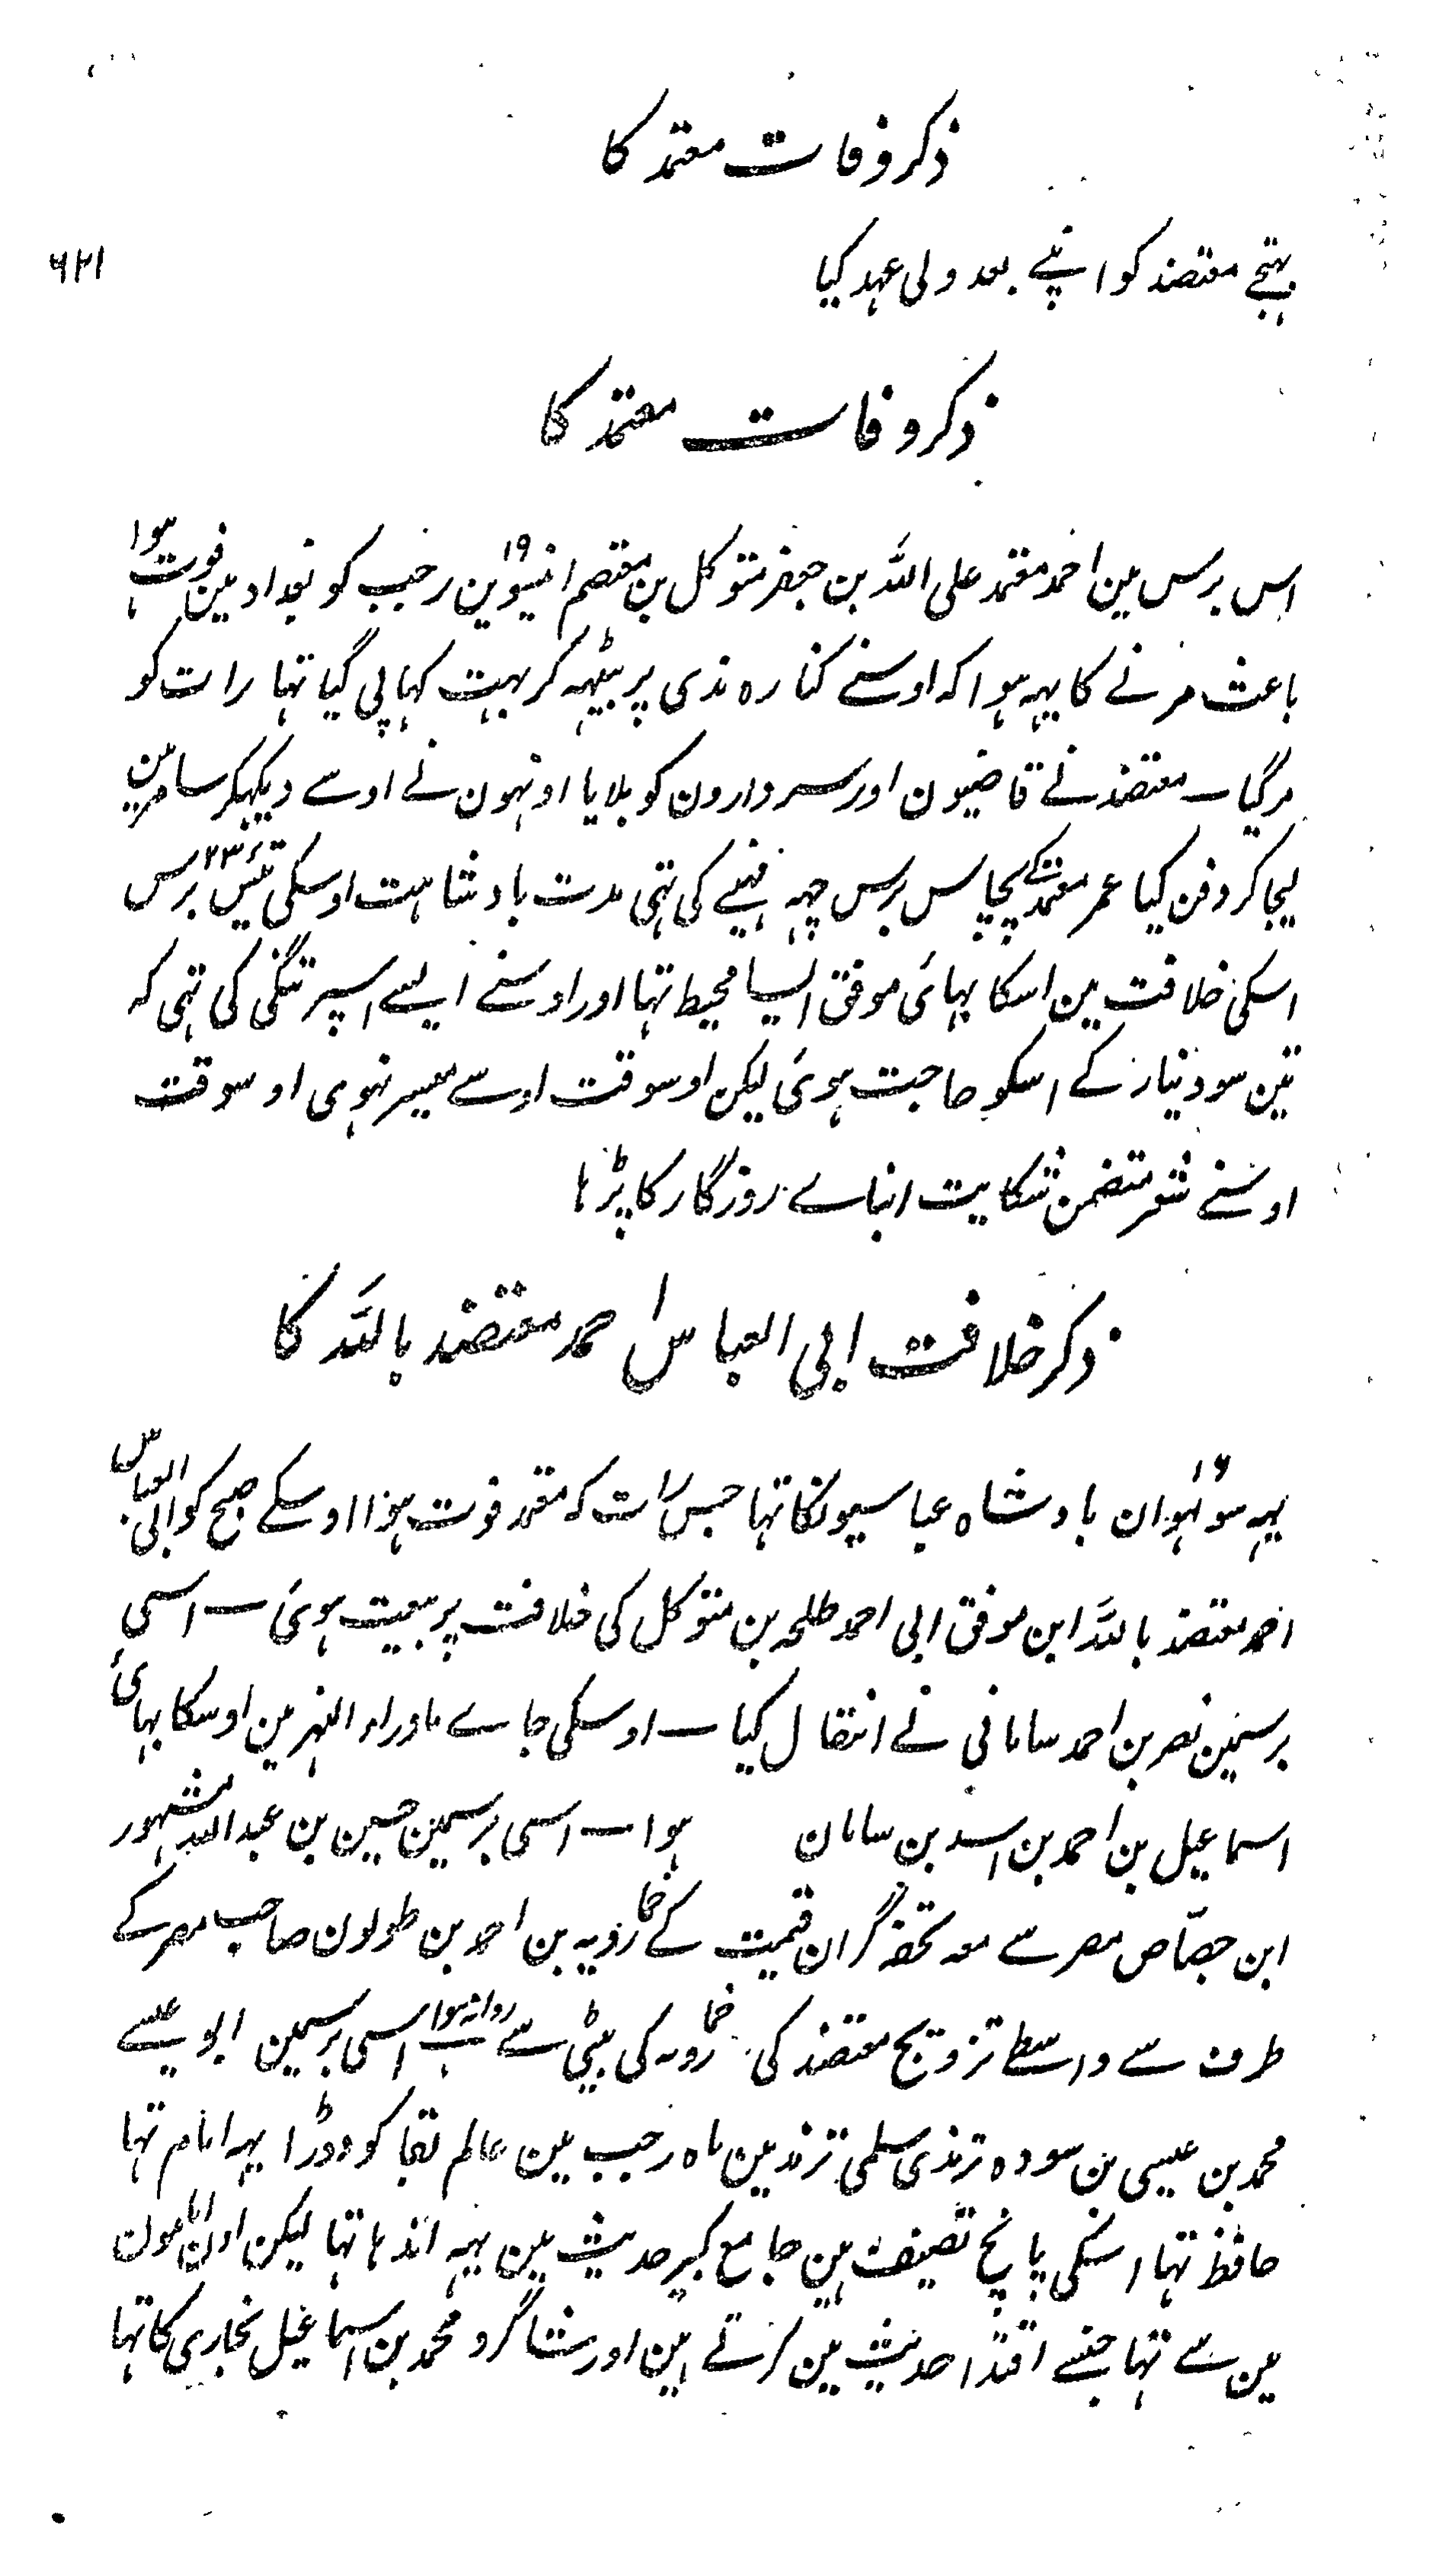 ذکر وفات معتمد کا
۶۲۱
بہتیجے معتضد کو اپنے بعد ولی عہد کیا
ذکر وفات معتمد کا
اس برس مین احمد معتمد علی اللہ بن جعفر متوکل بن معتصم انیسوین ۱۹ رجب کو بغداد مین فوت ہوا
باعث مرنے کا یہہ ہوا کہ اوسنے کنارہ ندی پر بیٹھہ کر بہت کہا پی گیا تہا رات کو
مرگیا ۔ معتضد نے قاضیون اور سردارون کو بلایا اونہون نے اوسے دیکہکر سامرمین
لیجا کر دفن کیا عمر معتمد کے پچاس برس چہہ مہینے کی تہی مدت بادشاہت اوسکی تیئس ۲۳ برس
اسکی خلافت مین اسکا بہائی موفق ایسا محیط تہا اور اوسنے ایسے اسپر تنگی کی تہی کہ
تین سو دینار کے اسکو حاجت ہوئی لیکن اوسوقت اوسے میسر نہوی اوسوقت
اوسنے شعر متضمن شکایت ابناے روزگار کا پڑہا
ذکر خلافت ابی العباس احمد معتضد باللہ کا
یہہ سولہوان ۱۶ بادشاہ عباسیونکا تہا جس رات کہ معتمد فوت ہوا اوسکے صبح کو ابی العباس
احمد معتضد باللہ ابن موفق ابی احمد طلحہ بن متوکل کی خلافت پر بیعت ہوئی ۔ اسی
برسمین نصر بن احمد سامانی نے انتقال کیا ۔ اوسکی جاے ماوراء النہر مین اوسکا بہائی
اسماعیل بن احمد بن اسد بن سامان ہوا ۔ اسی برسمین حسین بن عبداللہ مشہور
ابن جصّاص مصر سے معہ تحفہ گران قیمت کے خمارویہ بن احمد بن طولون صاحب مصر کے
طرف سے واسطے تزویج معتضد کی خمارویہ کی بیٹی سے روانہ ہوا اسی برسمین ابو عیسے
محمد بن عیسی بن سودہ ترمذی سلمی ترمذ مین ماہ رجب مین عالم بقا کو دوڑا یہہ امام تہا
حافظ تہا اسکی پانچ تصنیف ہین جامع کبیر حدیث مین یہہ اندہا تہا لیکن اون امامون
مین سے تہا جنسے اقتدا حدیث مین کرتے ہین اور شاگرد محمد بن اسماعیل بخاری کا تہا